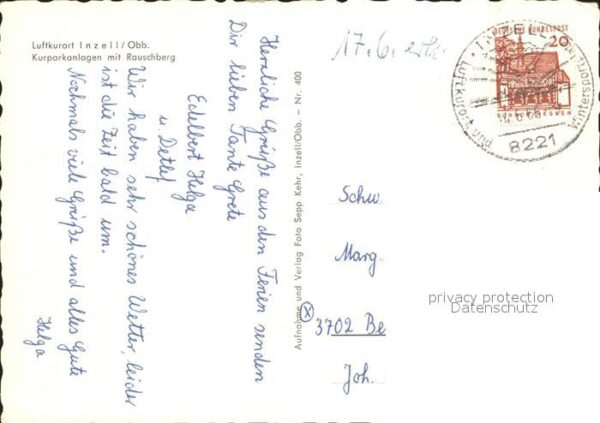 Luftkurort Inzell/Obb.
Kurparkanlagen mit Rauschberg
Herzliche Grüße aus den Ferien senden
Dir lieben Tante Grete
Edelbert Helga
u. Detlef
Wir haben sehr schönes Wetter, leider
ist die Zeit bald um.
Nochmals viele Grüße und alles Gute
Helga
Aufnahme und Verlag Foto Sepp Kehr, Inzell/Obb. – Nr. 400
17.6.
DEUTSCHE BUNDESPOST
20
INZELL
Luftkurort und Wintersportplatz
8221
Schw
Marg
3702 Be
Joh.
privacy protection
Datenschutz